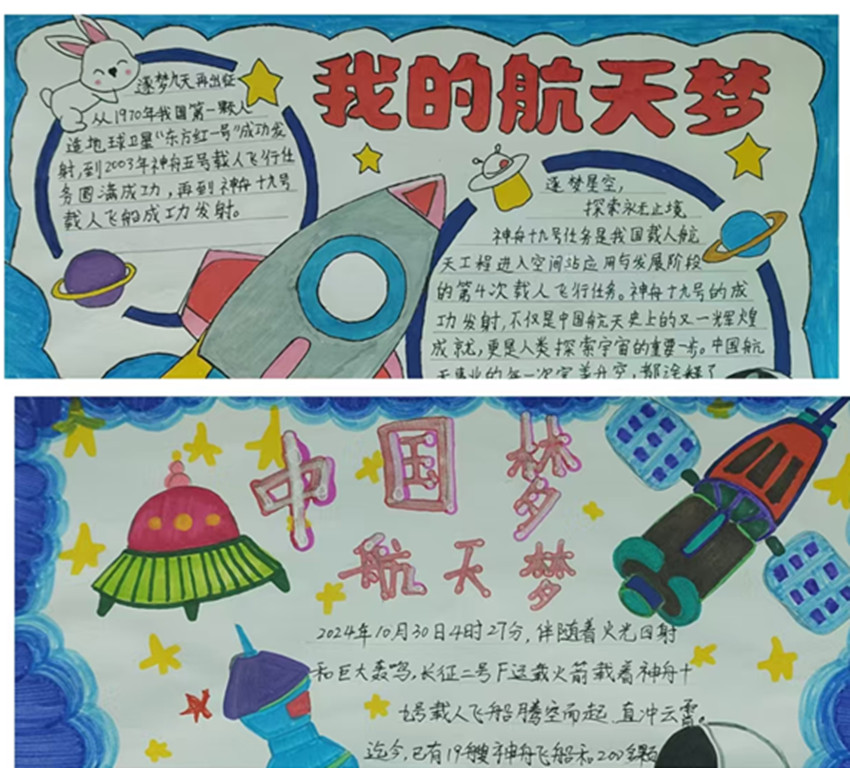 我的航天梦
逐梦九天再出征
从1970年我国第一颗人
造地球卫星“东方红一号”成功发
射,到2003年神舟五号载人飞行任
务圆满成功,再到神舟十九号
载人飞船成功发射。
逐梦星空,
探索永无止境
神舟十九号任务是我国载人航
天工程进入空间站应用与发展阶段
的第4次载人飞行任务。神舟十九号的成
功发射,不仅是中国航天史上的又一辉煌
成就,更是人类探索宇宙的重要一步。中国航
天事业的每一次完美升空,都诠释了
中国梦
航天梦
2024年10月30日4时27分,伴随着火光四射
和巨大轰鸣,长征二号F运载火箭载着神舟十
九号载人飞船腾空而起 直冲云霄。
迄今,已有19艘神舟飞船和200多颗